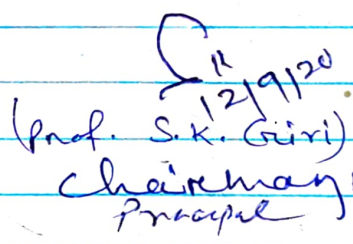 12/9/20
(Prof. S.K. Giri)
Chairman
Principal